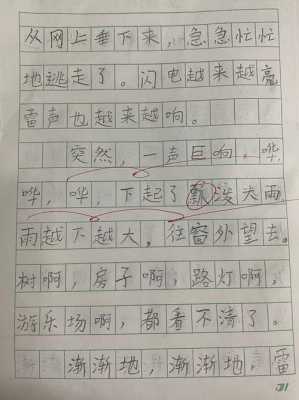 从网上垂下来,急急忙忙
地逃走了。闪电越来越亮
雷声也越来越响。
突然,一声巨响,哗,
哗,哗,下起了瓢泼大雨
雨越下越大,往窗外望去。
树啊,房子啊,路灯啊,
游乐场啊,都看不清了。
渐渐地,渐渐地,雷